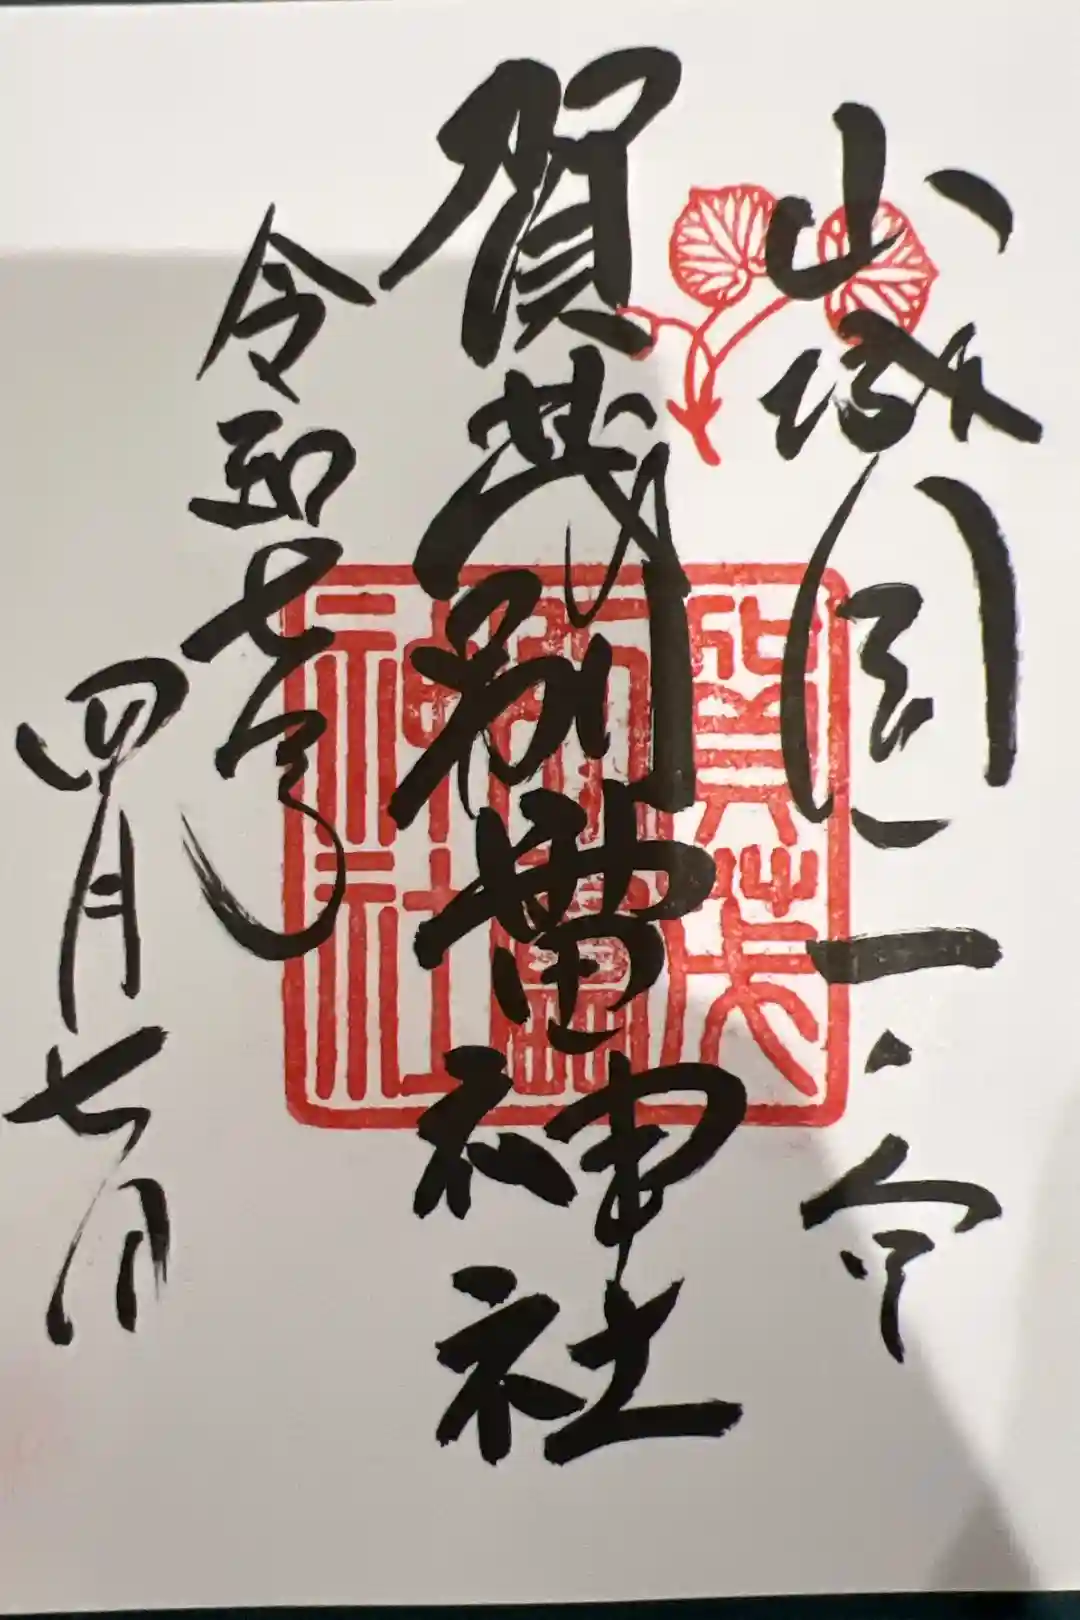 山城国一之宮
賀茂別雷神社
令和七年
四月七日
賀茂
別雷
神社